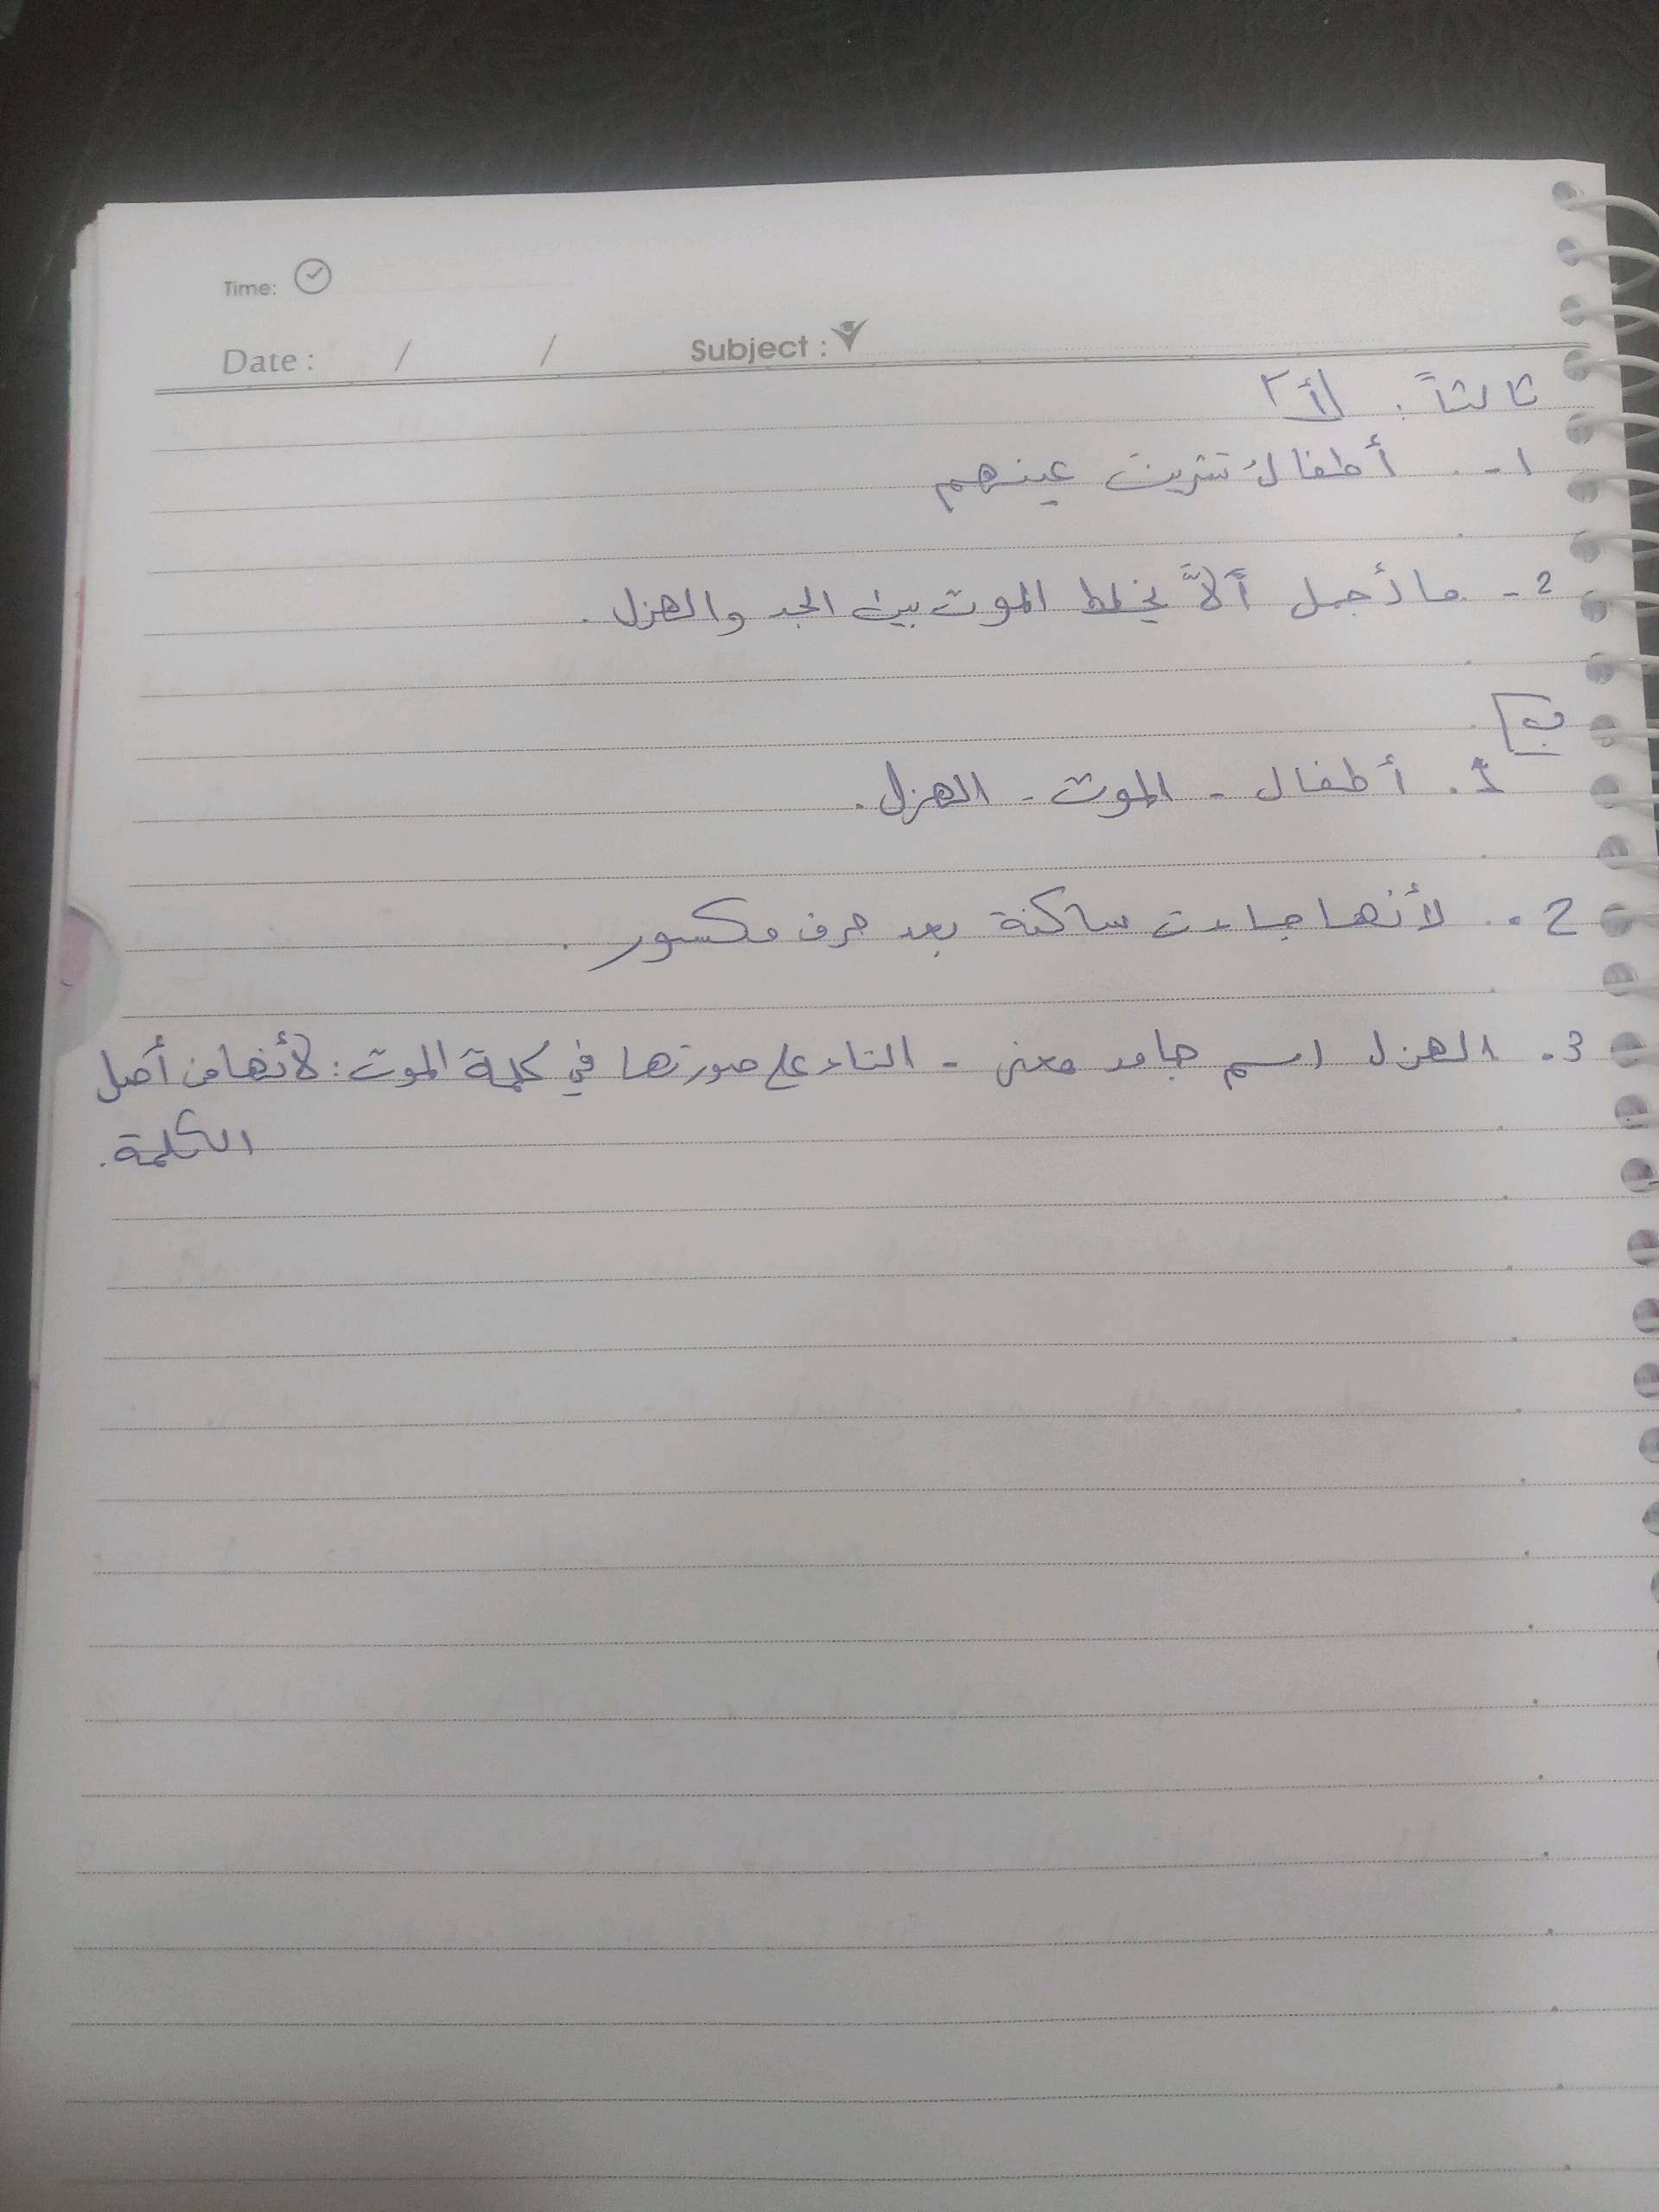 Time:
Date : / / Subject :
ثالثاً : أ
1- أطفال تشرين عينهم
2- ما أجمل ألاّ يخلط الموت بين الجد والهزل .
ب
1. أطفال - الموت - الهزل .
2. لأنها جاءت ساكنة بعد حرف مكسور .
3. الهزل اسم جامد معنى - التاء على صورتها في كلمة الموت : لأنها من أصل
الكلمة .